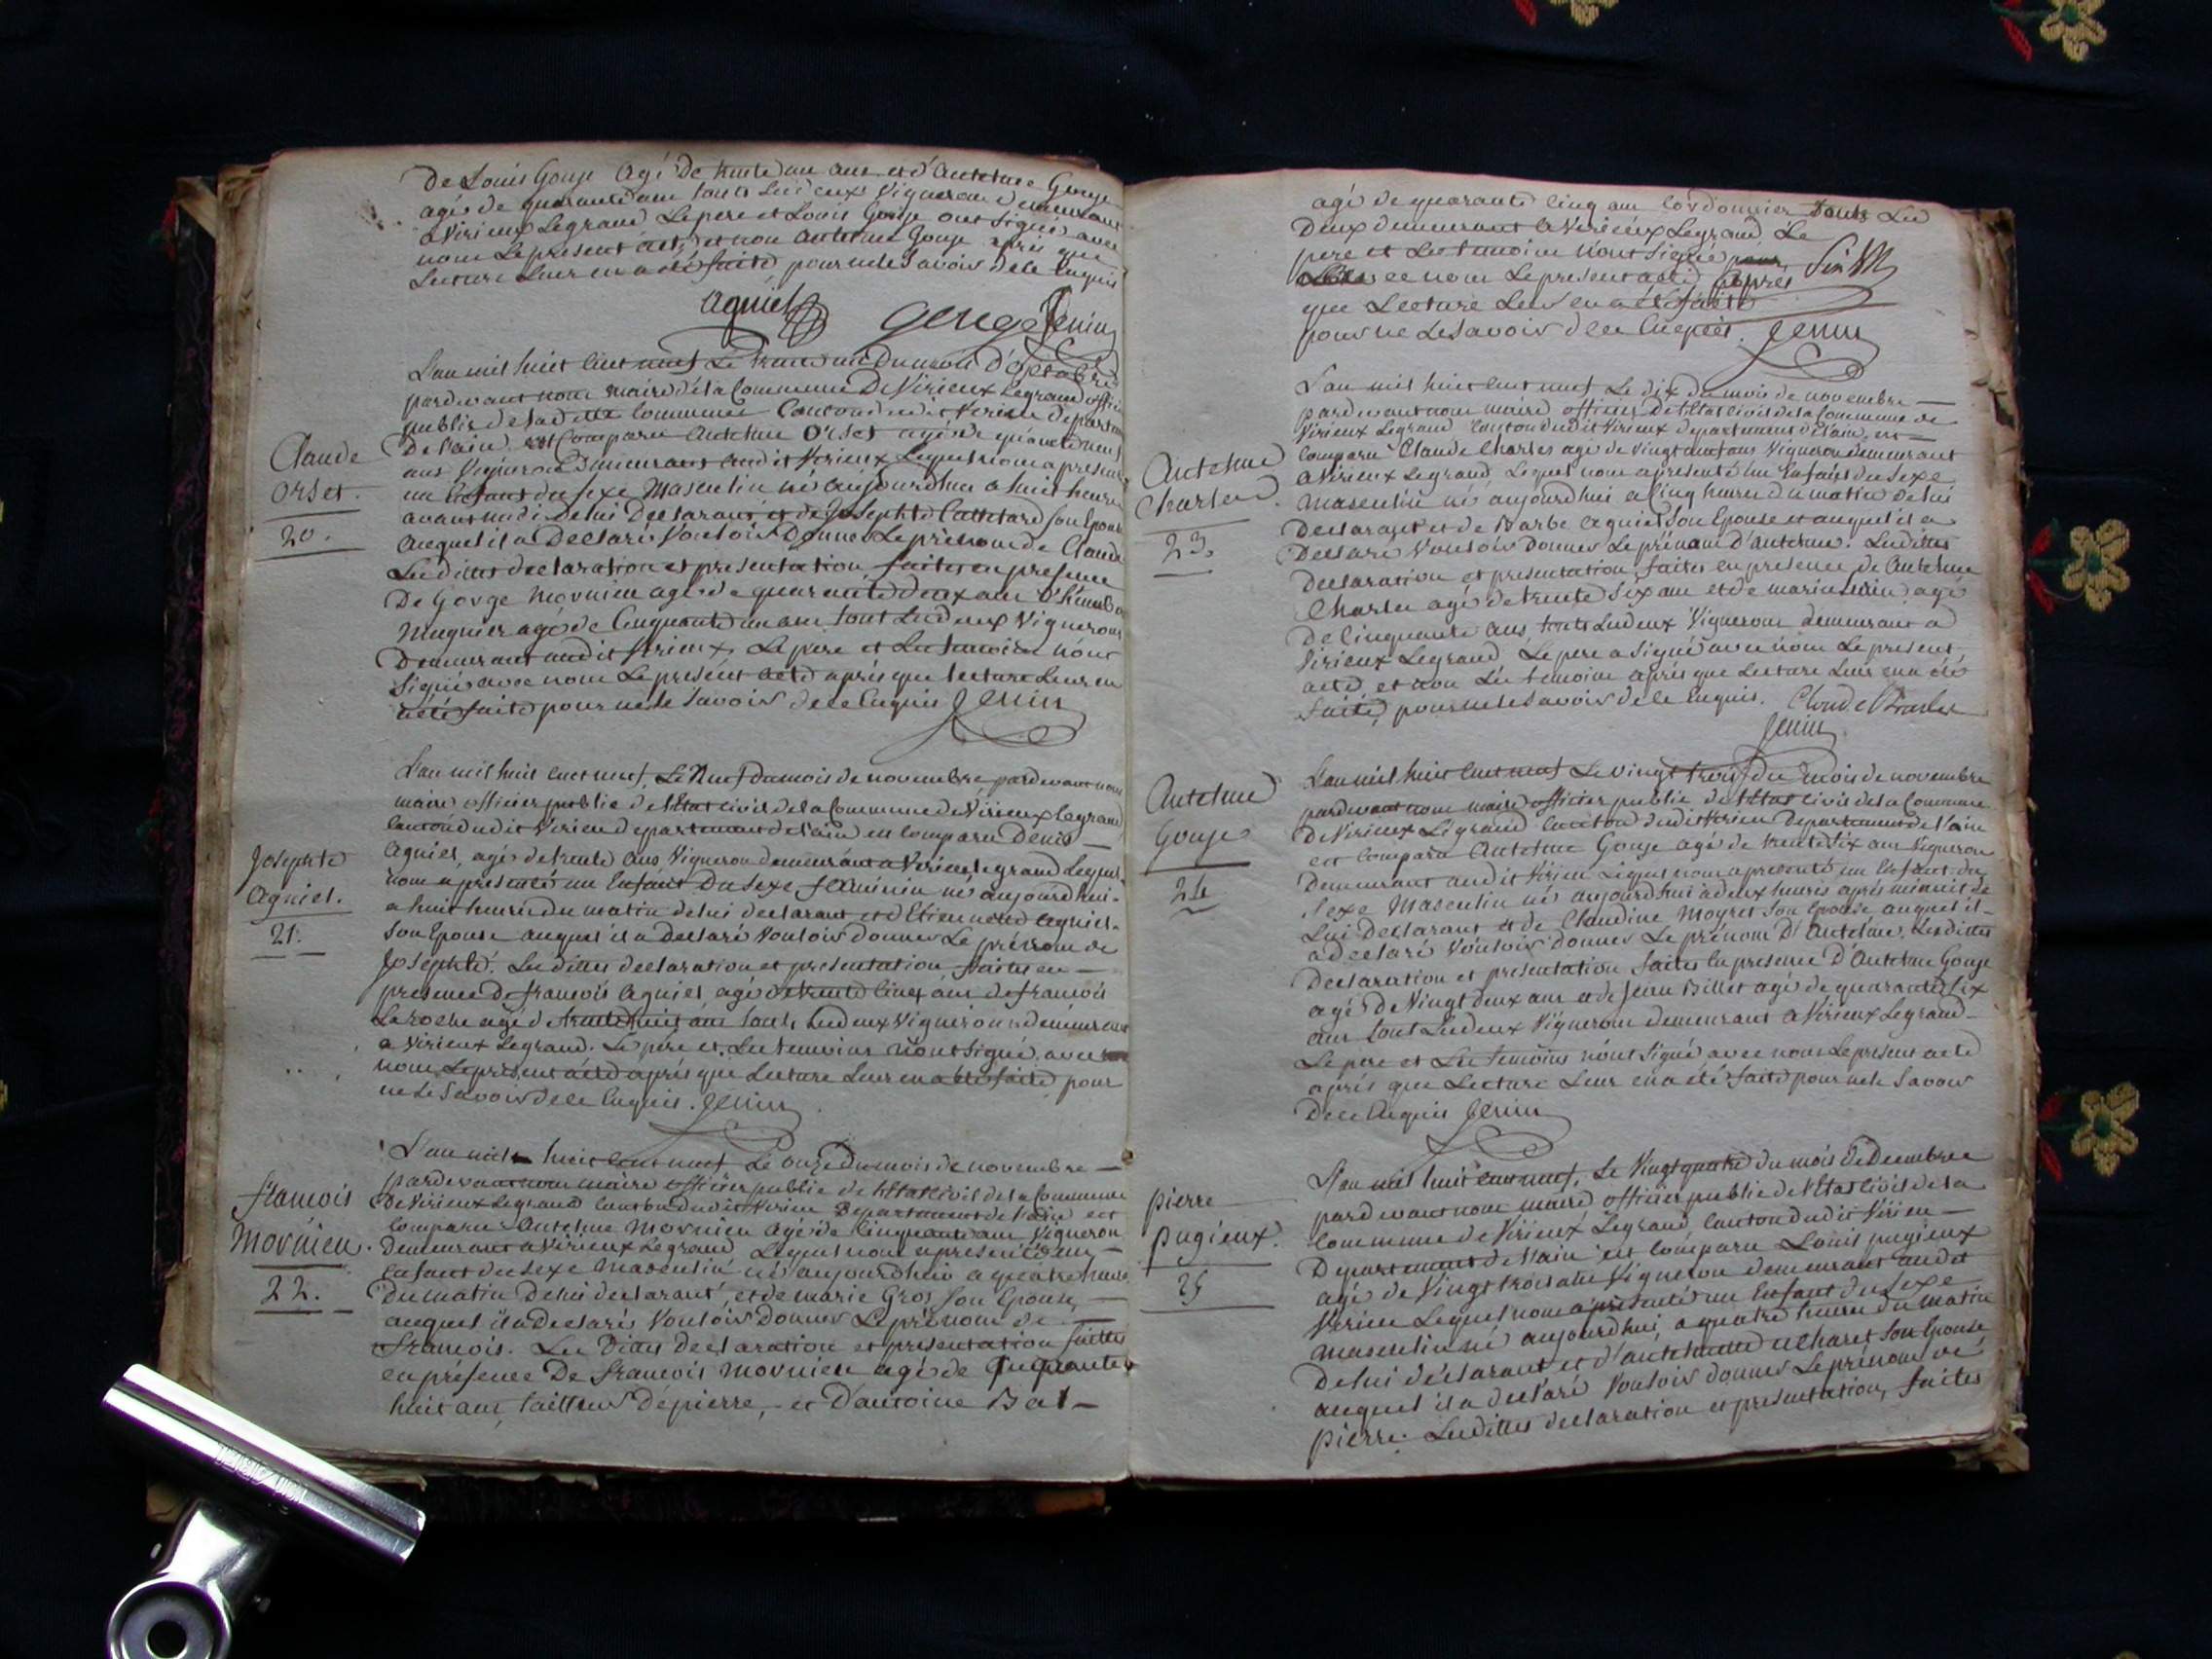 De Louis Gouje agé De trente un ans et d'Antelme Gouje
agé de quarante ans touts Les deux Vigneron demeurant
a Virieux Legrand Le pere et Louis Gouje ont Signé avec
nous Le present acte, et non Antelme Gouje après que
Lecture Leur en a été faite pour ne le Savoir de ce Enquis
agniel Genge Jenin
L'an mil huit cent neuf Le trente un Du mois D'octobre
pardevant nous maire de la Commune De Virieux Legrand officier
public de la ditte Commune Canton dudit Virieu Departement
Claude
Orset.
20.
De l'ain est Comparu Antelme Orset agé de quarante neuf
ans Vigneron Demeurant audit Virieux Lequel nous a presenté
un Enfant du Sexe Masculin né aujourd'hui a huit heures
avant midi De lui Declarant et de Josephte Cattelard Son Epouse
auquel il a Declaré Vouloir Donner Le prénom de Claude
Les dittes declaration et presentation faites en presence
De Gorge Mornieu agé de quarante deux ans
Mugnier agé de Cinquante un ans tout Les deux Vignerons
Demeurant audit Virieux, Le pere et Les temoins n'ont
Signé avec nous Le présent acte après que lecture Leur en
a été faite pour ne le Savoir de ce Enquis Jenin
L'an mil huit cent neuf, Le Neuf du mois de novembre, pardevant nous
maire officier public de l'Etat civil de la Commune de Virieux legrand
Canton dudit Virieu departement de l'ain est Comparu Denis
Josephte
Agniel.
21.
Agniel, agé de trente ans Vigneron demeurant a Virieu legrand Lequel
nous a presenté un Enfant Du Sexe féminin né aujourd'hui
a huit heures du matin de lui declarant et d'Etiennette Agniel
Son Epouse auquel il a Declaré Vouloir donner Le prénom de
Josephte. Les dittes declaration et presentation faites en
presence De francois Agniel agé de trente cinq ans de francois
Laroche agé de trente huit ans touts Les deux Vigneron demeurant
a Virieux Legrand. Le pere et Les temoins n'ont Signé avec
nous Le present acte après que Lecture Leur en a été faite, pour
ne le Savoir de ce Enquis. Jenin
L'an mil huit cent neuf Le onze Du mois de novembre
pardevant nous maire officier public de l'Etat civil de la Commune
francois
Mornieu.
22.
De Virieux Legrand Canton dudit Virieu Departement de l'ain est
Comparu Antelme Mornieu agé de Cinquante ans Vigneron
Demeurant a Virieux Legrand, Lequel nous a presenté un
Enfant du Sexe Masculin né aujourd'hui a quatre heures
Du matin De lui declarant, et de marie Gros Son Epouse
auquel il a Declaré Vouloir Donner Le prénom de
francois. Les Dittes Declaration et présentation faittes
en présence De francois Mornieu agé de Cinquante
huit ans tailleur De pierre, et D'antoine Bal-
agé de quarante cinq ans Cordonnier touts Les
Deux demeurant a Virieux Legrand, Le
pere et Les temoins n'ont Signé
avec nous Le present acte après
que Lecture Leur en a été faite
pour ne Le Savoir de ce Enquis. Jenin
L'an mil huit cent neuf Le dix du mois de novembre
pardevant nous maire officier De l'Etat civil de la Commune de
Virieux Legrand Canton dudit Virieux departement de l'ain est
Antelme
Charles.
23.
Comparu Claude Charles agé de Vingt huit ans Vigneron demeurant
a Virieux Legrand Lequel nous a presenté un Enfant du Sexe
Masculin né aujourd'hui a Cinq heures du matin De lui
Declarant et de Barbe Agniel Son Epouse et auquel il a
Declaré Vouloir Donner Le prénom d'Antelme. Les dittes
declaration et presentation faites en presence de Antelme
Charles agé de trente Six ans et de marin agé
De Cinquante ans, touts Les deux Vignerons demeurant a
Virieux Legrand Le pere a Signé avec nous Le present
acte, et non Les temoins après que Lecture Leur en a été
faite, pour ne le Savoir de ce Enquis. Claude Charles
Jenin
L'an mil huit cent neuf Le vingt trois du mois de novembre
pardevant nous maire officier public de l'Etat civil de la Commune
Antelme
Gouje
24
De Virieux Legrand Canton dudit Virieu Departement de l'ain
est Comparu Antelme Gouje agé de trente Six ans Vigneron
Demeurant audit Virieu Lequel nous a presenté un Enfant du
Sexe Masculin né aujourd'hui a deux heures après minuit de
Lui Declarant et de Claudine Moyret Son Epouse auquel il
a declaré Vouloir donner Le prénom D'Antelme. Les dittes
Declaration et presentation faites En presence D'Antelme Gouje
agé De Vingt deux ans et de Jean Billet agé de quarante Six
ans tout Les deux Vignerons demeurant a Virieux Legrand
Le pere et Les temoins n'ont Signé avec nous Le present acte
après que Lecture Leur en a été faite pour ne le Savoir
De ce Enquis Jenin
L'an mil huit cent neuf, Le Vingt quatre du mois De Decembre
pardevant nous maire officier public de l'Etat civil de la
pierre
pugieux.
25
Commune de Virieux Legrand Canton dudit Virieu
Departement de l'ain est Comparu Louis pugieux
agé de Vingt trois ans Vigneron demeurant audit
Virieu Lequel nous a présenté un Enfant du Sexe
masculin né aujourd'hui, a quatre heures du matin
De lui déclarant et d'antelmette Charet Son Epouse
auquel il a declaré Vouloir donner Le prénom de
pierre. Les dittes declaration et presentation, faites